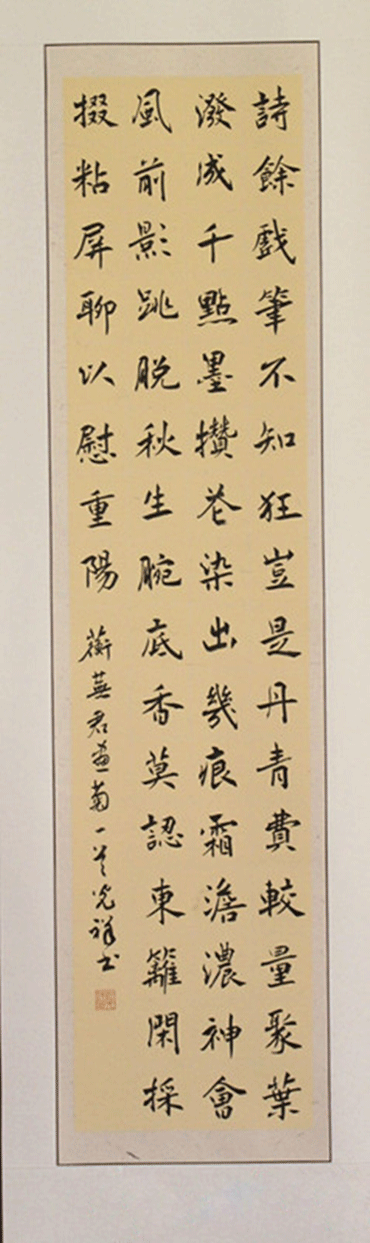 詩餘戲筆不知狂豈是丹青費較量聚葉
潑成千點墨攢花染出幾痕霜澹濃神會
風前影跳脱秋生腕底香莫認東籬閑採
掇粘屏聊以慰重陽
蘅蕪君畫菊一首光祥书